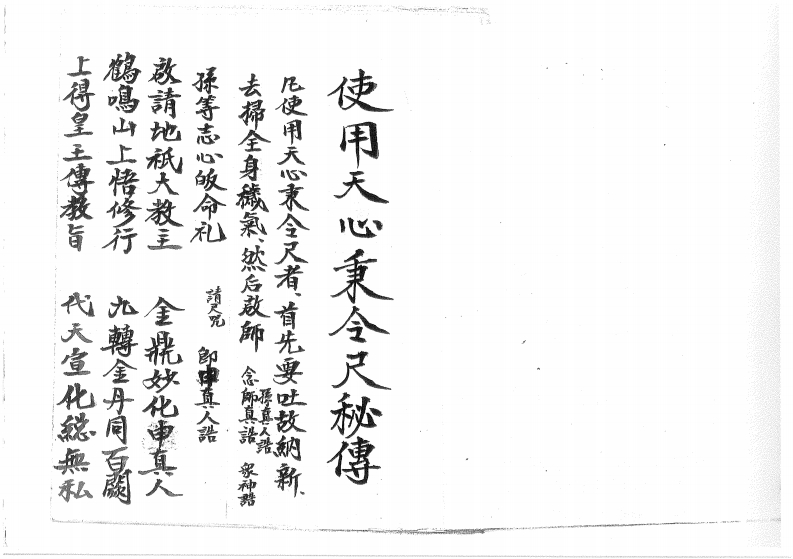 使用天心秉令尺秘傳
凡使用天心秉令尺者、首先要吐故納新、
去掃全身穢氣、然后啟師 念師真誥 孫真人誥 眾神誥
孫等志心皈命礼 請尺咒 即申真人誥
啟請地祇大教主 金鼎妙化申真人
鶴鳴山上悟修行 九轉金丹同百闕
上得皇王傳教旨 代天宣化總無私